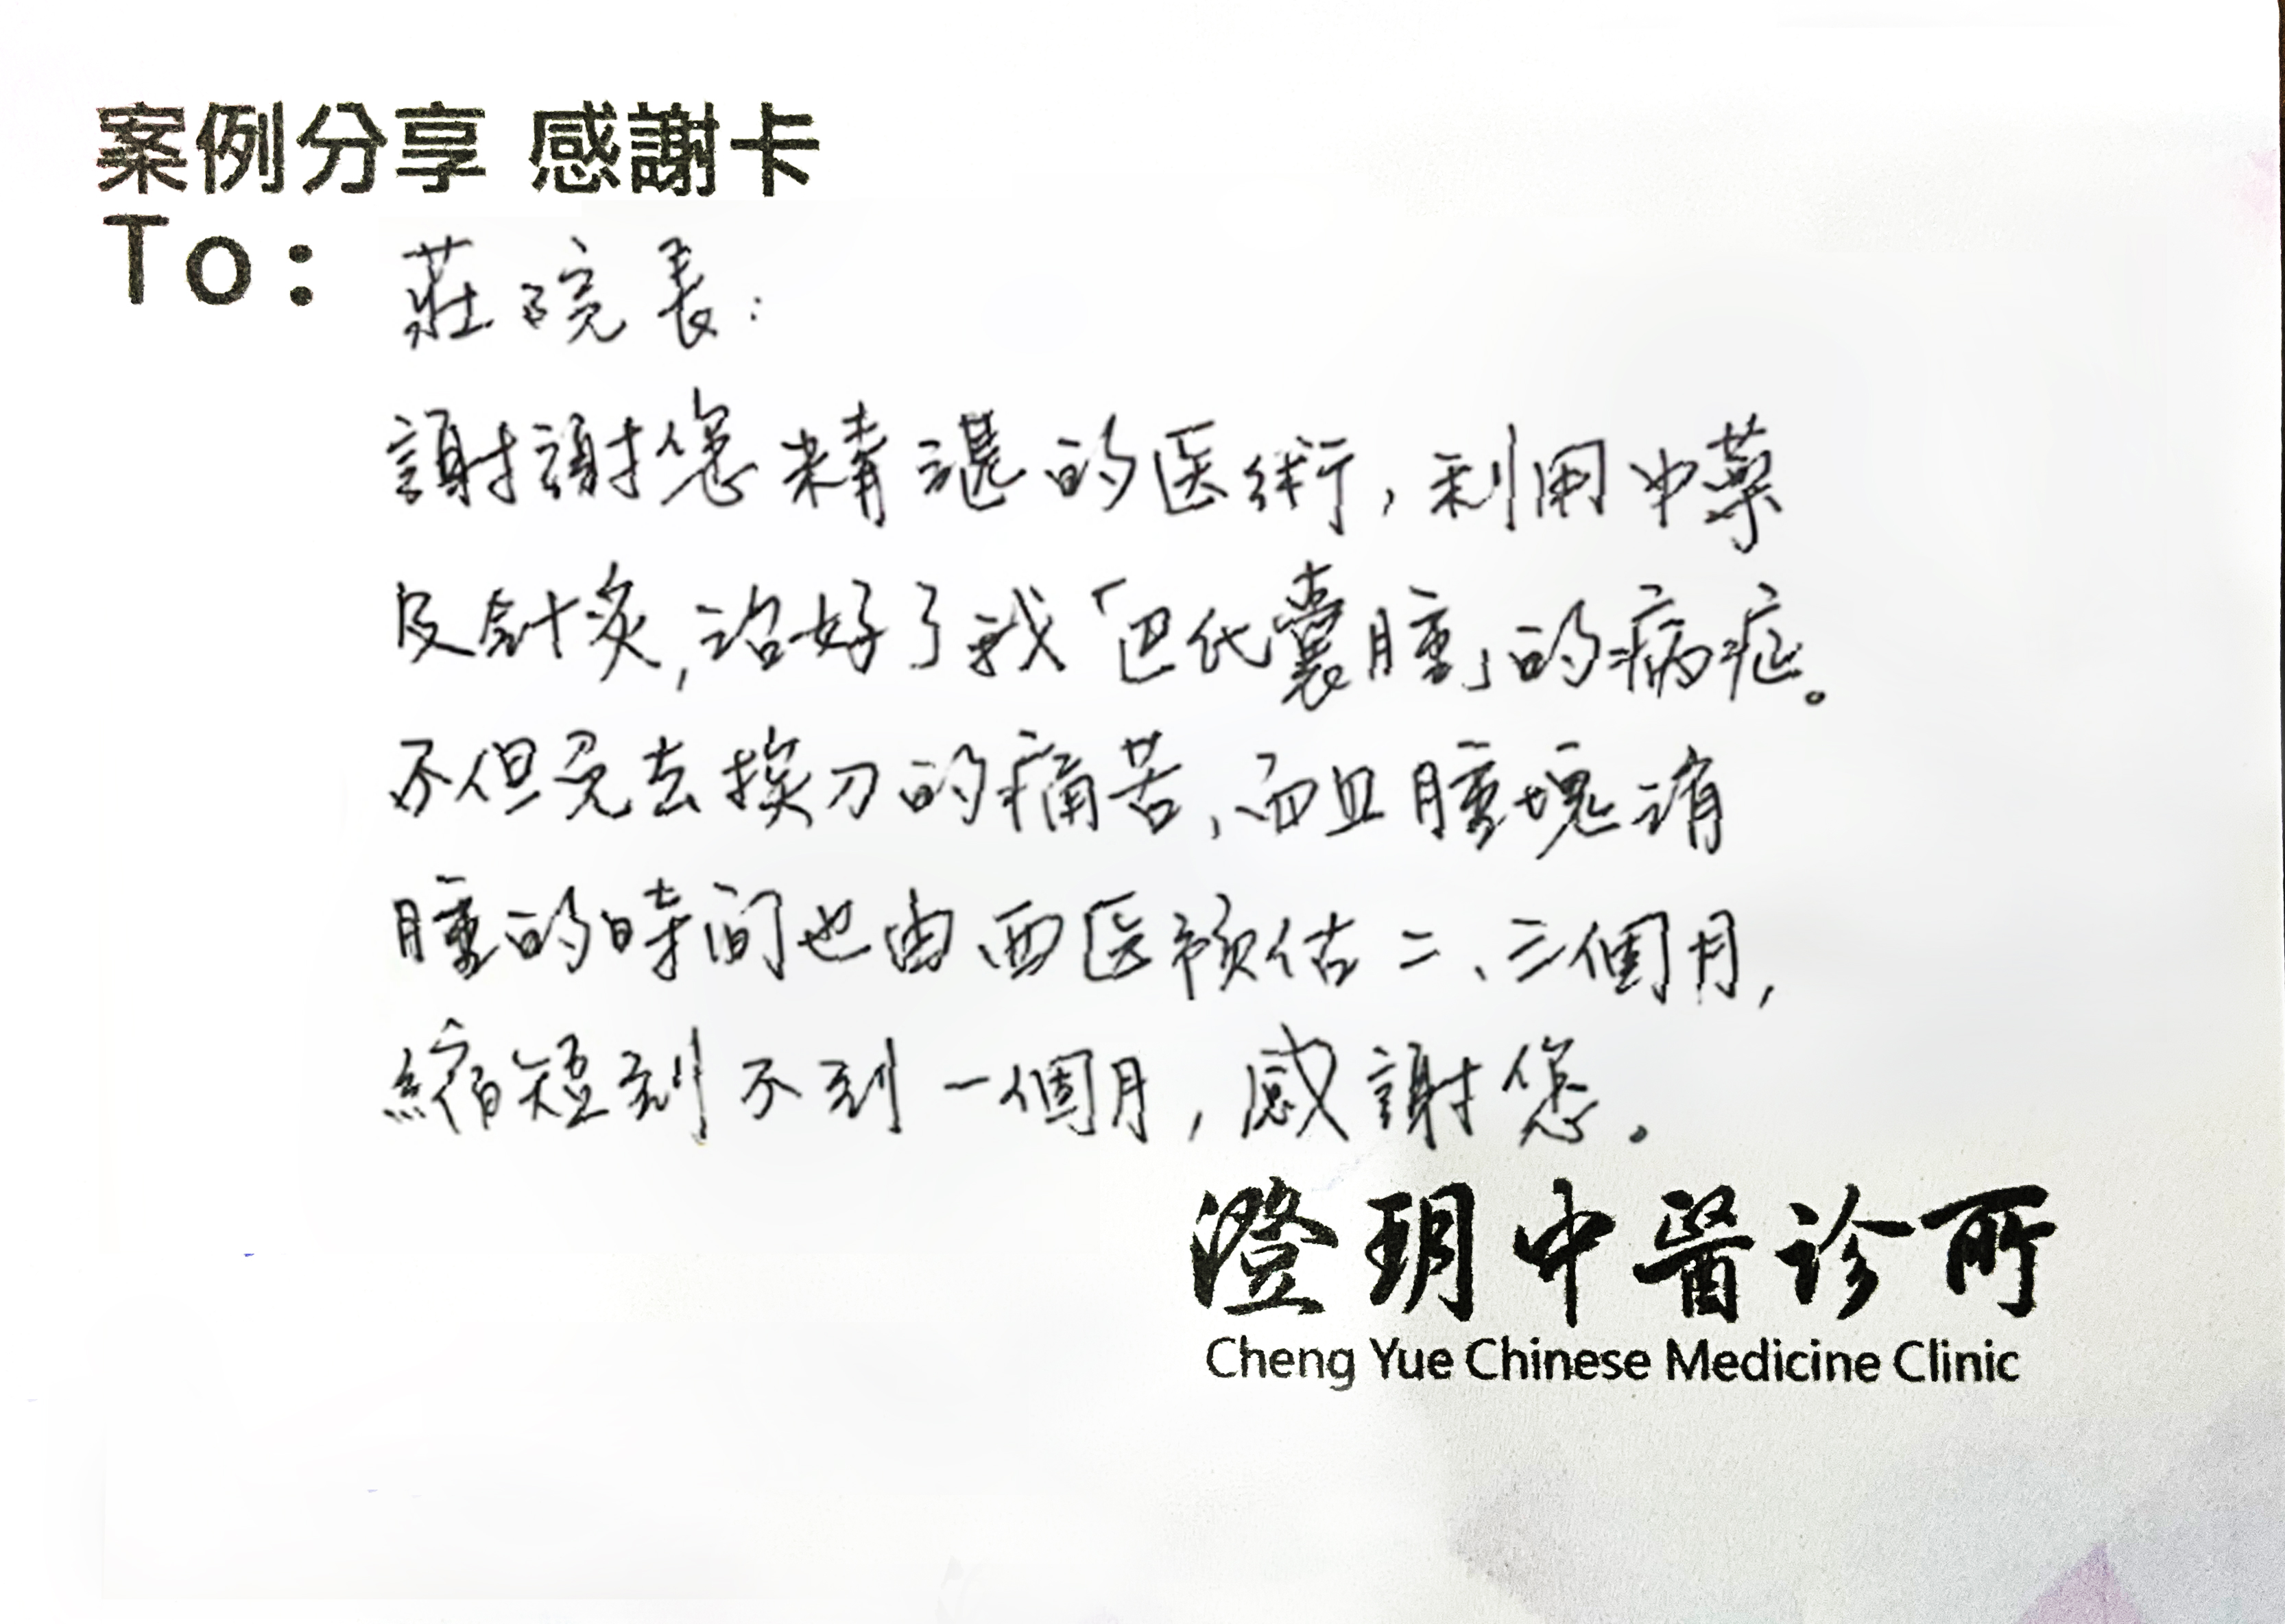 案例分享 感謝卡
To：莊院長：
謝謝您精湛的医術，利用中藥
及針灸，治好了我「巴氏囊腫」的病症。
不但免去挨刀的痛苦，而且腫塊消
腫的時间也由西医預估二、三個月，
縮短到不到一個月，感謝您。
澄玥中醫診所
Cheng Yue Chinese Medicine Clinic